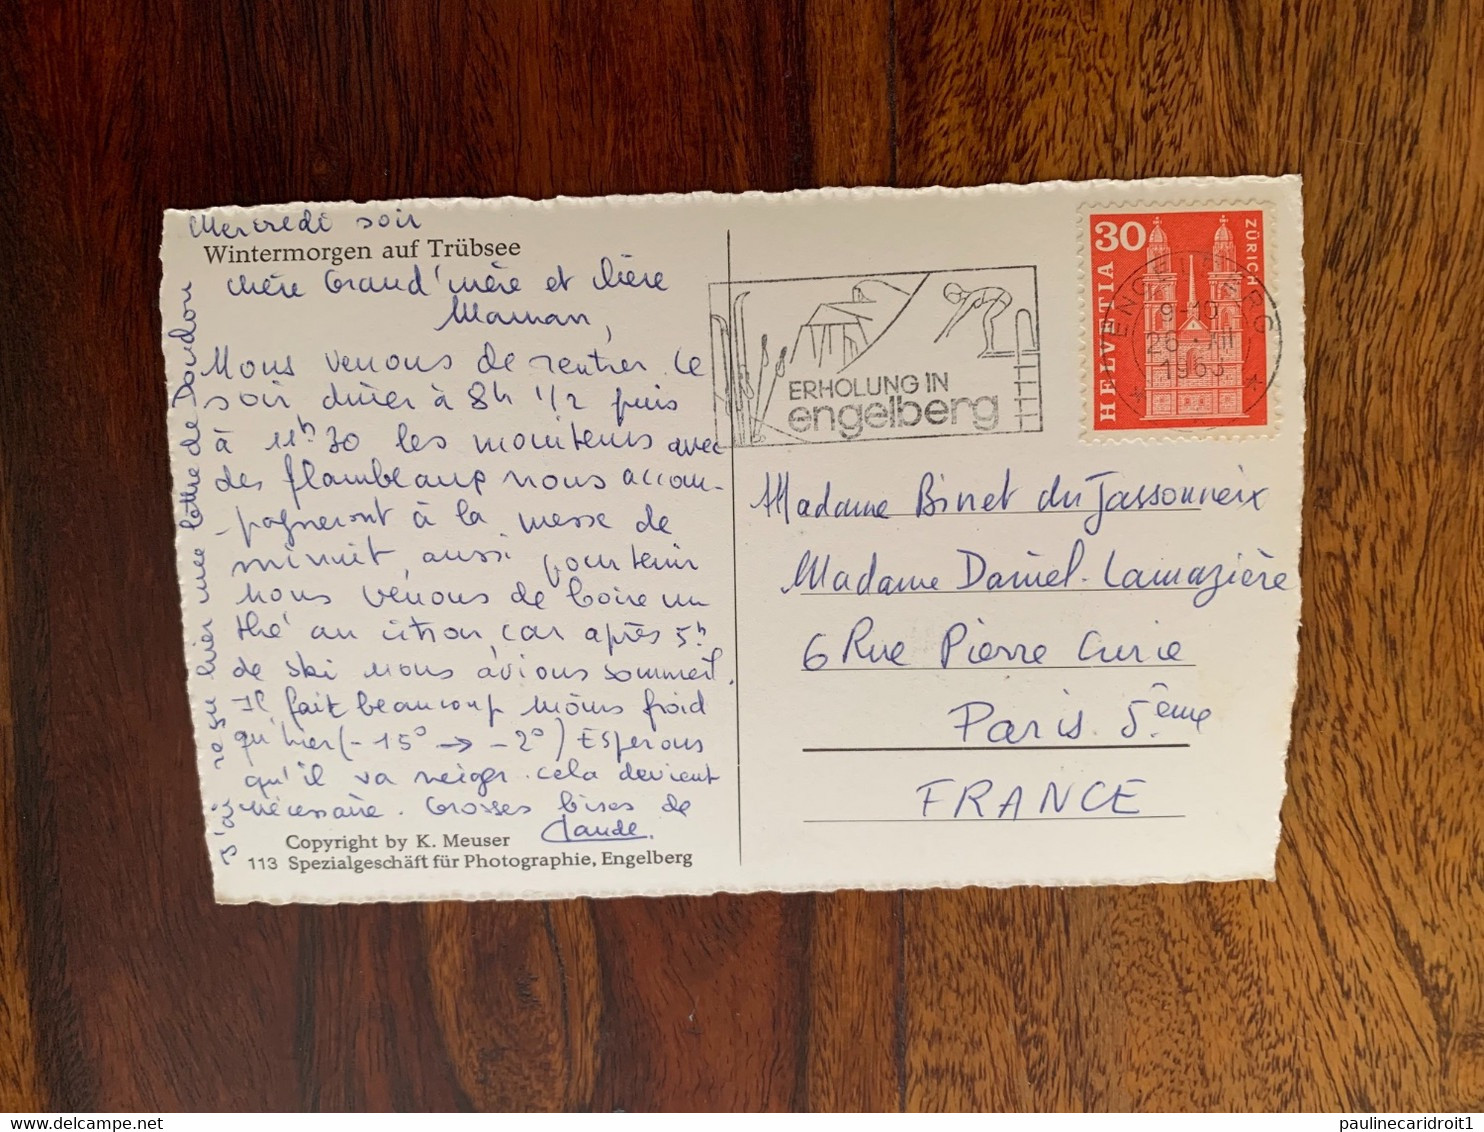 Mercredi soir
Wintermorgen auf Trübsee
chère Grand'mère et chère
Maman,
Nous venons de rentrer. Ce
soir dîner à 8h 1/2 puis
à 11h30 les moniteurs avec
des flambeaux nous accom-
-pagneront à la messe de
minuit, aussi pour tenir
nous venons de boire un
thé au citron car après 5h
de ski nous avions sommeil.
Il fait beaucoup moins froid
qu'hier (-15° → -2°) Espérons
qu'il va neiger. cela devient
nécessaire. Grosses bises de
Claude.
J'ai reçu hier une lettre de
Copyright by K. Meuser
113 Spezialgeschäft für Photographie, Engelberg
ERHOLUNG IN
engelberg
30
HELVETIA
ZÜRICH
ENGELBERG
9-10
26. XII
1963
Madame Binet du Jassonneix
Madame Daniel-Lamazière
6 Rue Pierre Curie
Paris. 5ème
FRANCE
paulinecaridroit1